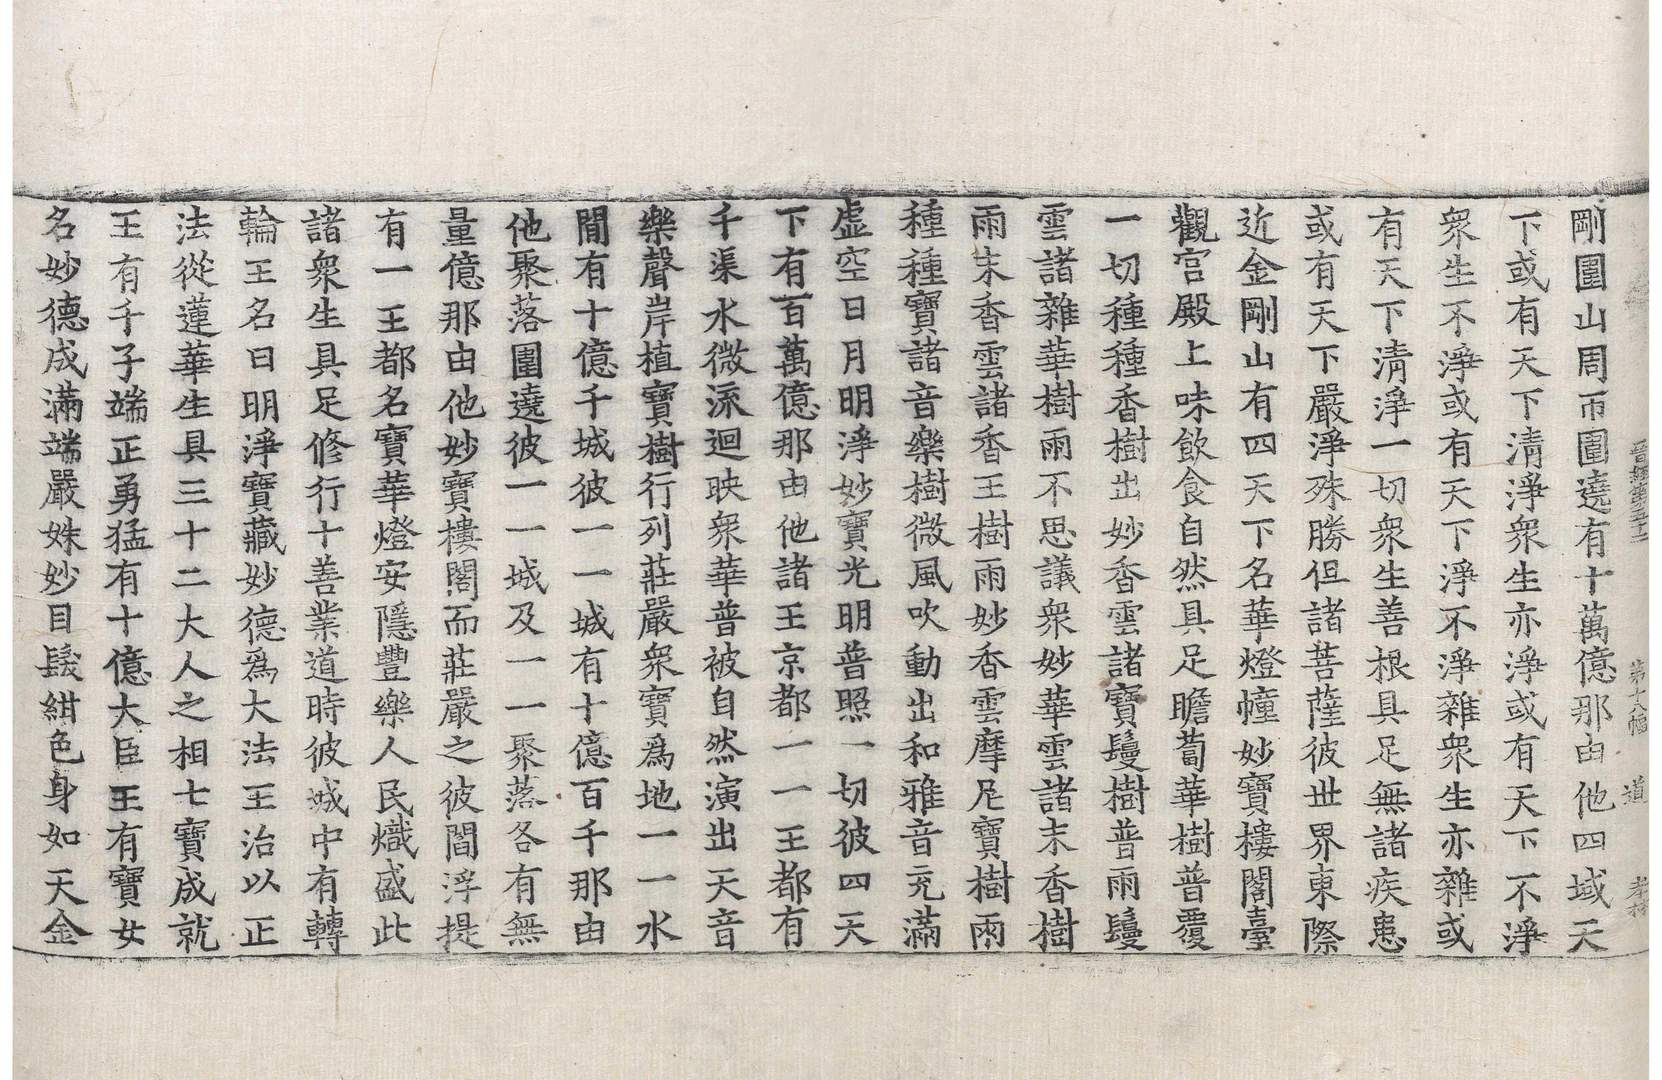 剛圍山周帀圍遶有十萬億那由他四域天
下或有天下清淨衆生亦淨或有天下不淨
衆生不淨或有天下淨不淨雜衆生亦雜或
有天下清淨一切衆生善根具足無諸疾患
或有天下嚴淨殊勝但諸菩薩彼世界東際
近金剛山有四天下名華燈幢妙寶樓閣臺
觀宮殿上味飲食自然具足瞻蔔華樹普覆
一切種種香樹出妙香雲諸寶鬘樹普雨鬘
雲諸雜華樹雨不思議衆妙華雲諸末香樹
雨末香雲諸香王樹雨妙香雲摩尼寶樹雨
種種寶諸音樂樹微風吹動出和雅音充滿
虛空日月明淨妙寶光明普照一切彼四天
下有百萬億那由他諸王京都一一王都有
千渠水微流迴映衆華普被自然演出天音
樂聲岸植寶樹行列莊嚴衆寶爲地一一水
間有十億千城彼一一城有十億百千那由
他聚落圍遶彼一一城及一一聚落各有無
量億那由他妙寶樓閣而莊嚴之彼閻浮提
有一王都名寶華燈安隱豐樂人民熾盛此
諸衆生具足修行十善業道時彼城中有轉
輪王名曰明淨寶藏妙德爲大法王治以正
法從蓮華生具三十二大人之相七寶成就
王有千子端正勇猛有十億大臣王有寶女
名妙德成滿端嚴姝妙目髮紺色身如天金
第十八幅 道